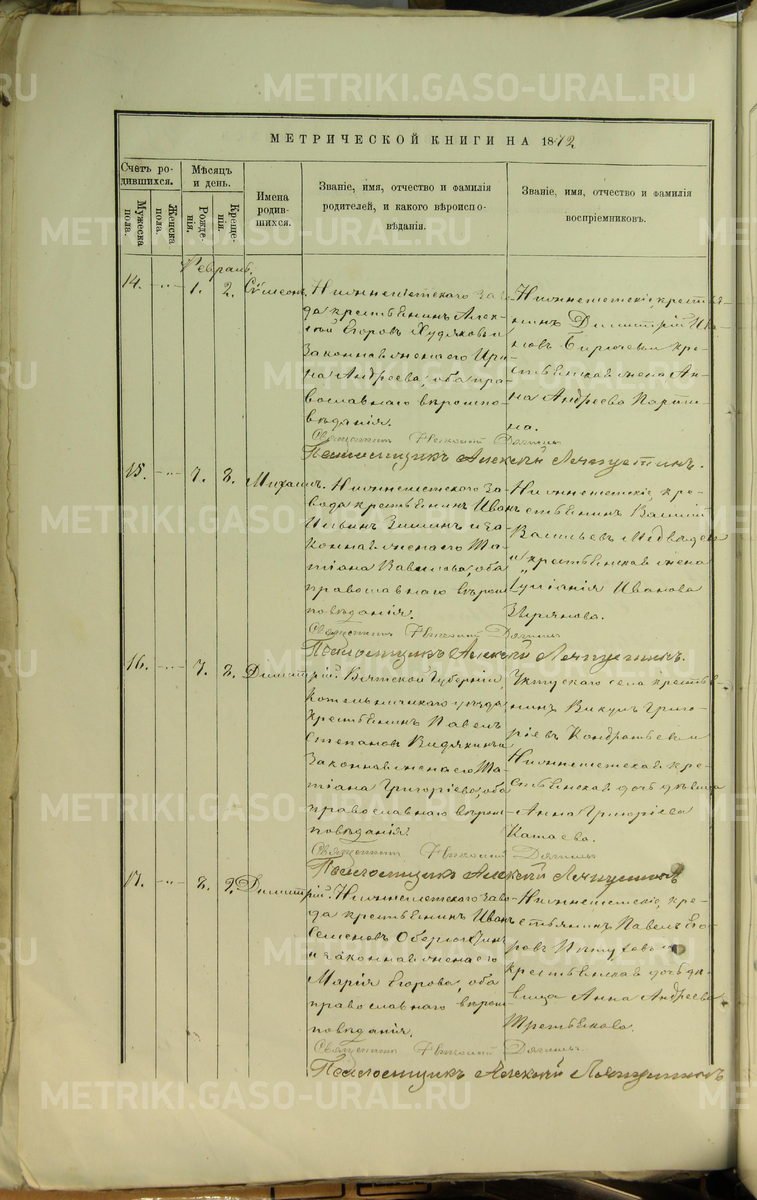 МЕТРИЧЕСКОЙ КНИГИ НА 1872
Счетъ родившихся.
Мужеска пола.
Женска пола.
Мѣсяцъ и день.
Рожденія.
Крещенія.
Имена родившихся.
Званіе, имя, отчество и фамилія
родителей, и какого вѣроиспо-
вѣданія.
Званіе, имя, отчество и фамилія
воспріемниковъ.
Февраль.
14. -"- 1. 2. Сѵмеонъ.
Нижнеисетскаго заво-
да крестьянинъ Алек-
сѣй Егоровъ Худяковъ и
Законная жена его Ири-
на Андреева, оба пра-
вославнаго вѣроиспо-
вѣданія.
Нижнеисетскіе, крестья-
нинъ Димитрій Ива-
новъ и кре-
стьянская жена Ан-
на Андреева
Священникъ Николай
Псаломщикъ Алексѣй Ляпустинъ.
15. -"- 7. 8. Михаилъ.
Нижнеисетскаго За-
вода крестьянинъ Иванъ
Ильинъ Зиминъ и за-
конная жена его Та-
тіана Вавилова, оба
православнаго вѣроис-
повѣданія.
Нижнеисетскіе, кре-
стьянинъ Василій
Васильевъ Медвѣдевъ
и крестьянская жена
Іуліанія Иванова
Зырянова.
Священникъ Николай
Псаломщикъ Алексѣй Ляпустинъ.
16. -"- 7. 8. Димитрій.
Вятской Губерніи,
Котельничскаго уѣзда,
Крестьянинъ Павелъ
Степановъ Видякинъ и
Законная жена его Та-
тіана Григоріева, оба
православнаго вѣроис-
повѣданія.
Уктусскаго села крестья-
нинъ Викулъ Григо-
ріевъ Кондратьевъ и
Нижнеисетская кре-
стьянская дочь дѣвица
Анна Григоріева
Катаева.
Священникъ Николай
Псаломщикъ Алексѣй Ляпустинъ
17. -"- 8. 9. Димитрій.
Нижнеисетскаго заво-
да крестьянинъ Иванъ
Семеновъ Оберюхтинъ
и законная жена его
Марія Егорова, оба
православнаго вѣроис-
повѣданія.
Нижнеисетскіе, кре-
стьянинъ Павелъ Его-
ровъ Пѣтуховъ и
крестьянская дочь дѣ-
вица Анна Андреева
Третьякова.
Священникъ Николай
Псаломщикъ Алексѣй Ляпустинъ
METRIKI.GASO-URAL.RU